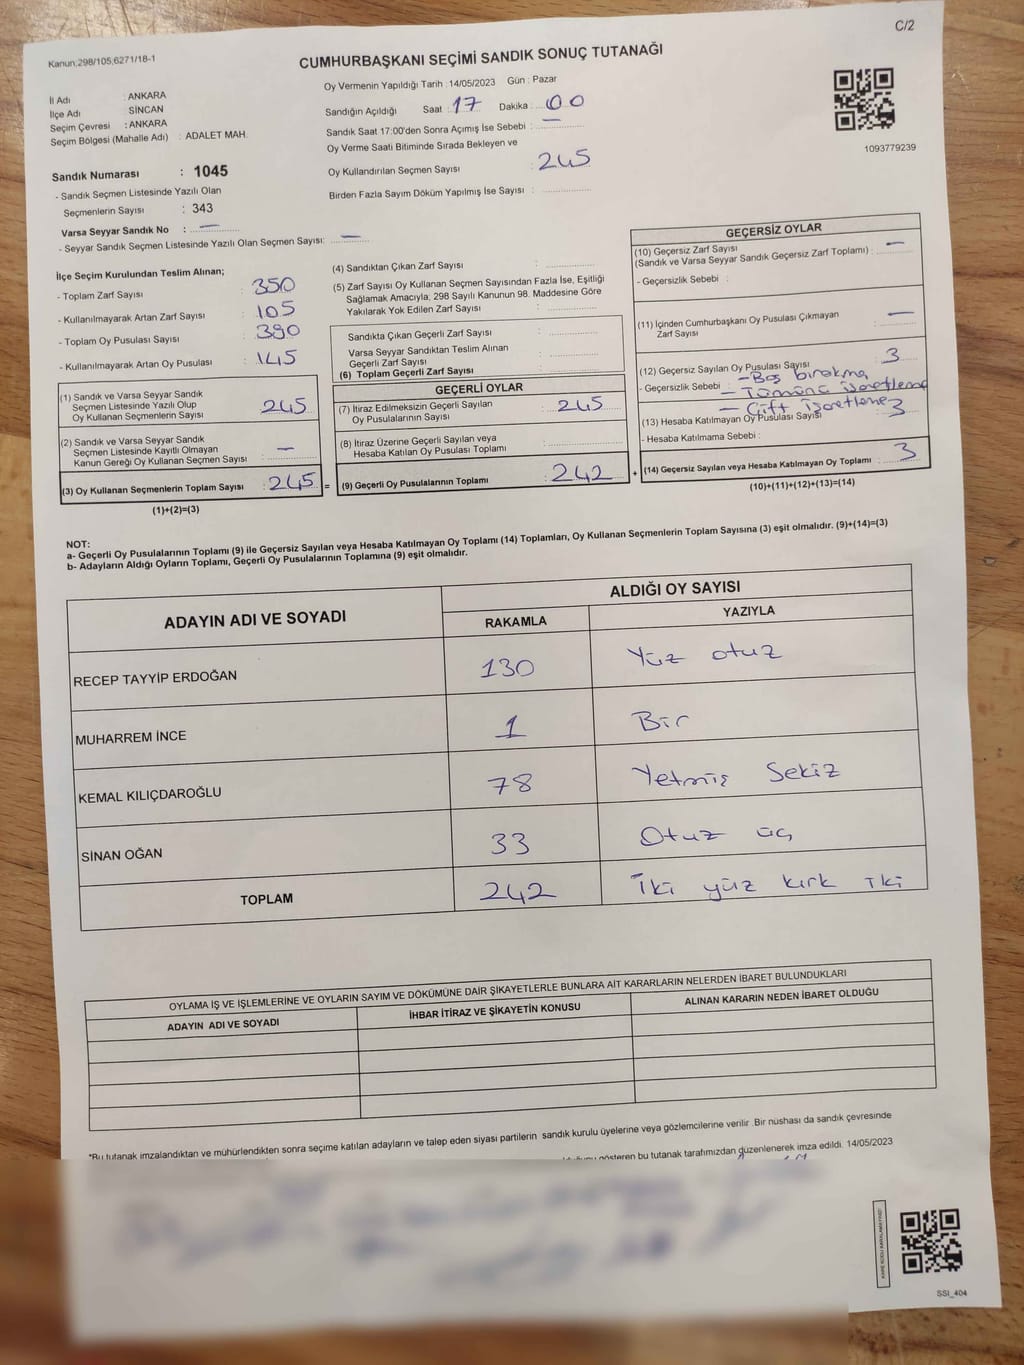 C/2
Kanun;298/105,6271/18-1
CUMHURBAŞKANI SEÇİMİ SANDIK SONUÇ TUTANAĞI
İl Adı : ANKARA
İlçe Adı : SİNCAN
Seçim Çevresi : ANKARA
Seçim Bölgesi (Mahalle Adı) : ADALET MAH.
Sandık Numarası : 1045
- Sandık Seçmen Listesinde Yazılı Olan
Seçmenlerin Sayısı : 343
Varsa Seyyar Sandık No : —
- Seyyar Sandık Seçmen Listesinde Yazılı Olan Seçmen Sayısı: —
Oy Vermenin Yapıldığı Tarih : 14/05/2023 Gün : Pazar
Sandığın Açıldığı Saat : 17 Dakika : 00
Sandık Saat 17:00'den Sonra Açımış İse Sebebi : —
Oy Verme Saati Bitiminde Sırada Bekleyen ve
Oy Kullandırılan Seçmen Sayısı : 245
Birden Fazla Sayım Döküm Yapılmış İse Sayısı :
1093779239
İlçe Seçim Kurulundan Teslim Alınan;
- Toplam Zarf Sayısı : 350
- Kullanılmayarak Artan Zarf Sayısı : 105
- Toplam Oy Pusulası Sayısı : 390
- Kullanılmayarak Artan Oy Pusulası : 145
(1) Sandık ve Varsa Seyyar Sandık
Seçmen Listesinde Yazılı Olup
Oy Kullanan Seçmenlerin Sayısı : 245
(2) Sandık ve Varsa Seyyar Sandık
Seçmen Listesinde Kayıtlı Olmayan
Kanun Gereği Oy Kullanan Seçmen Sayısı : —
(3) Oy Kullanan Seçmenlerin Toplam Sayısı : 245 =
(1)+(2)=(3)
(4) Sandıktan Çıkan Zarf Sayısı :
(5) Zarf Sayısı Oy Kullanan Seçmen Sayısından Fazla İse, Eşitliği
Sağlamak Amacıyla; 298 Sayılı Kanunun 98. Maddesine Göre
Yakılarak Yok Edilen Zarf Sayısı :
Sandıkta Çıkan Geçerli Zarf Sayısı :
Varsa Seyyar Sandıktan Teslim Alınan
Geçerli Zarf Sayısı :
(6) Toplam Geçerli Zarf Sayısı :
GEÇERLİ OYLAR
(7) İtiraz Edilmeksizin Geçerli Sayılan
Oy Pusulalarının Sayısı : 245
(8) İtiraz Üzerine Geçerli Sayılan veya
Hesaba Katılan Oy Pusulası Toplamı :
(9) Geçerli Oy Pusulalarının Toplamı : 242 +
GEÇERSİZ OYLAR
(10) Geçersiz Zarf Sayısı
(Sandık ve Varsa Seyyar Sandık Geçersiz Zarf Toplamı) : —
- Geçersizlik Sebebi :
(11) İçinden Cumhurbaşkanı Oy Pusulası Çıkmayan
Zarf Sayısı : —
(12) Geçersiz Sayılan Oy Pusulası Sayısı : 3
- Geçersizlik Sebebi : – Boş bırakma
– Tamamı işaretleme
– Çift işaretleme
(13) Hesaba Katılmayan Oy Pusulası Sayısı : 3
- Hesaba Katılmama Sebebi :
(14) Geçersiz Sayılan veya Hesaba Katılmayan Oy Toplamı : 3
(10)+(11)+(12)+(13)=(14)
NOT:
a- Geçerli Oy Pusulalarının Toplamı (9) ile Geçersiz Sayılan veya Hesaba Katılmayan Oy Toplamı (14) Toplamları, Oy Kullanan Seçmenlerin Toplam Sayısına (3) eşit olmalıdır. (9)+(14)=(3)
b- Adayların Aldığı Oyların Toplamı, Geçerli Oy Pusulalarının Toplamına (9) eşit olmalıdır.
ADAYIN ADI VE SOYADI ALDIĞI OY SAYISI
RAKAMLA YAZIYLA
RECEP TAYYİP ERDOĞAN 130 Yüz otuz
MUHARREM İNCE 1 Bir
KEMAL KILIÇDAROĞLU 78 Yetmiş Sekiz
SİNAN OĞAN 33 Otuz üç
TOPLAM 242 İki yüz kırk iki
OYLAMA İŞ VE İŞLEMLERİNE VE OYLARIN SAYIM VE DÖKÜMÜNE DAİR ŞİKAYETLERLE BUNLARA AİT KARARLARIN NELERDEN İBARET BULUNDUKLARI
ADAYIN ADI VE SOYADI İHBAR İTİRAZ VE ŞİKAYETİN KONUSU ALINAN KARARIN NEDEN İBARET OLDUĞU
*Bu tutanak imzalandıktan ve mühürlendikten sonra seçime katılan adayların ve talep eden siyasi partilerin sandık kurulu üyelerine veya gözlemcilerine verilir. Bir nüshası da sandık çevresinde
gösteren bu tutanak tarafımızdan düzenlenerek imza edildi. 14/05/2023
SSI_404